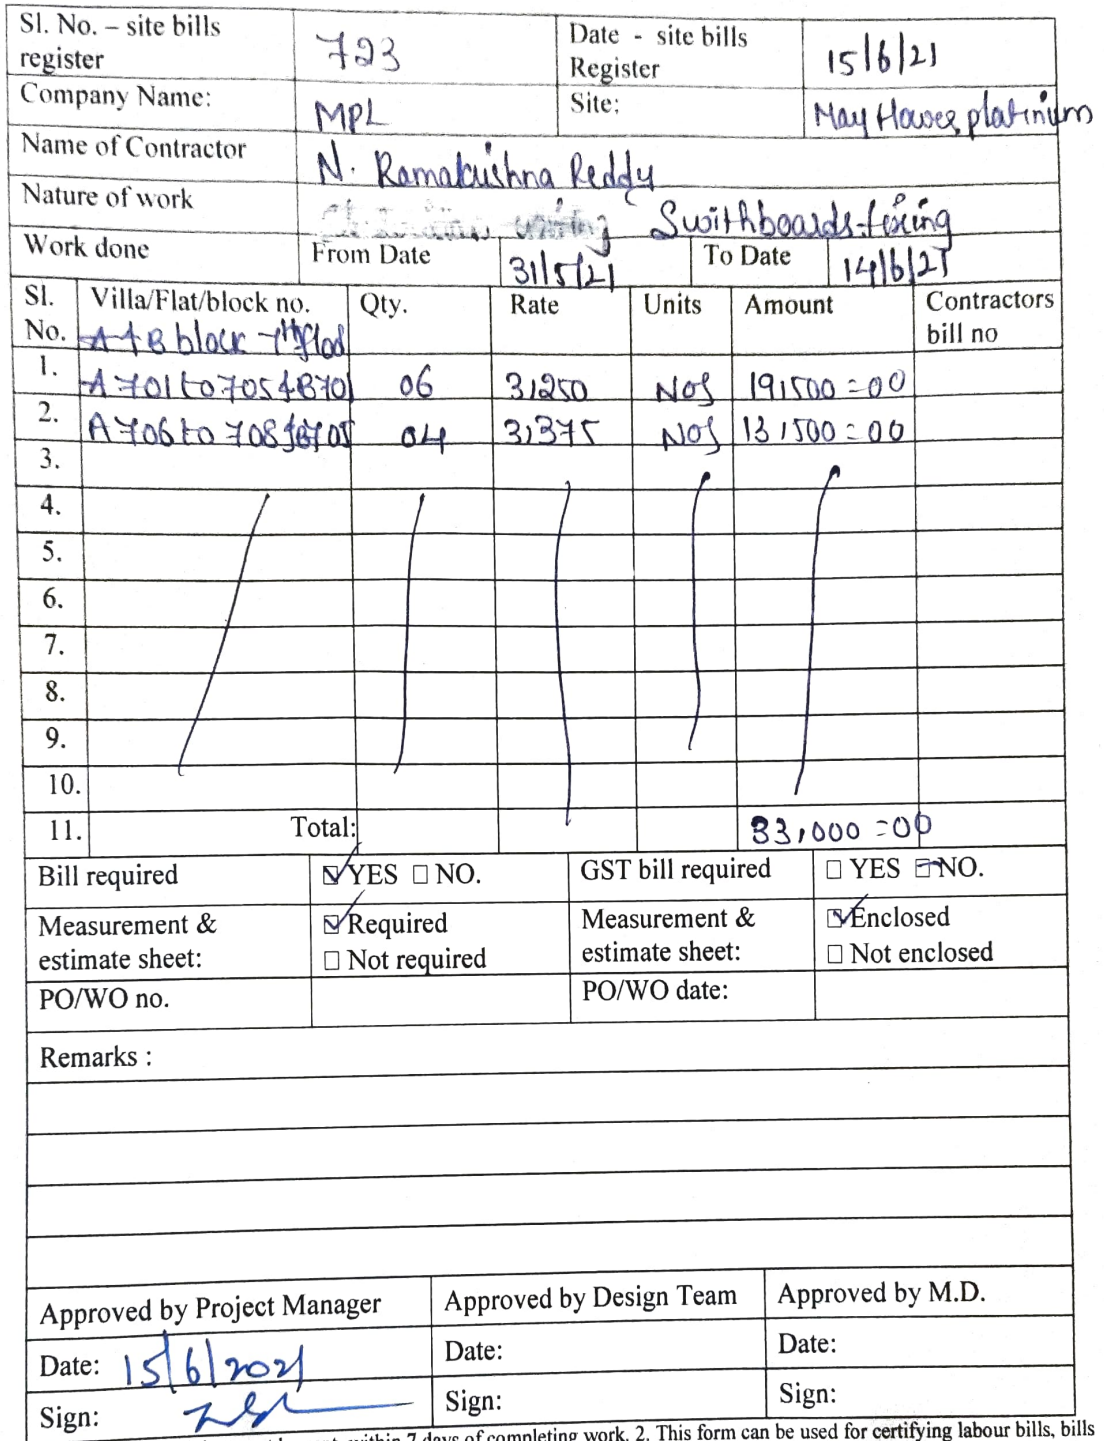 Sl. No. – site bills register 723 Date - site bills Register 15/6/21
Company Name: MPL Site: May Flower platinum
Name of Contractor N. Ramakrishna Reddy
Nature of work Swithboards fixing
Work done From Date 31/5/21 To Date 14/6/21
Sl. No. Villa/Flat/block no. Qty. Rate Units Amount Contractors bill no
A & B block 7th
1. A 701 to 705 & B701 06 3,250 NOS 19,500=00
2. A 706 to 708 & B705 04 3,375 NOS 13,500=00
3.
4.
5.
6.
7.
8.
9.
10.
11. Total: 33,000=00
Bill required ☑ YES ☐ NO. GST bill required ☐ YES ☑ NO.
Measurement & estimate sheet: ☑ Required ☐ Not required Measurement & estimate sheet: ☑ Enclosed ☐ Not enclosed
PO/WO no. PO/WO date:
Remarks :
Approved by Project Manager Approved by Design Team Approved by M.D.
Date: 15/6/2021 Date: Date:
Sign: Sign: Sign:
within 7 days of completing work. 2. This form can be used for certifying labour bills, bills